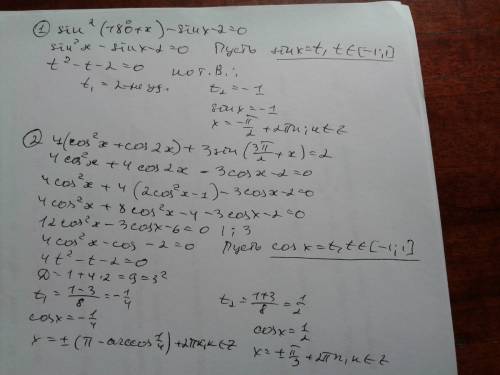 ① sin²(180°+x) - sinx - 2 = 0
sin²x - sinx - 2 = 0 Пусть sinx = t, t∈[-1;1]
t² - t - 2 = 0 по т. В.:
t₁ = 2 - не уд. t₂ = -1
sinx = -1
x = -π/2 + 2πn; n∈Z
② 4(cos²x + cos2x) + 3sin(3π/2 + x) = 2
4cos²x + 4cos2x - 3cosx - 2 = 0
4cos²x + 4(2cos²x - 1) - 3cosx - 2 = 0
4cos²x + 8cos²x - 4 - 3cosx - 2 = 0
12cos²x - 3cosx - 6 = 0 | : 3
4cos²x - cos - 2 = 0 Пусть cosx = t, t∈[-1;1]
4t² - t - 2 = 0
D = 1 + 4·2 = 9 = 3²
t₁ = (1-3)/8 = -1/4 t₂ = (1+3)/8 = 1/2
cosx = -1/4 cosx = 1/2
x = ±(π - arccos 1/4) + 2πn, n∈Z x = ±π/3 + 2πn, n∈Z